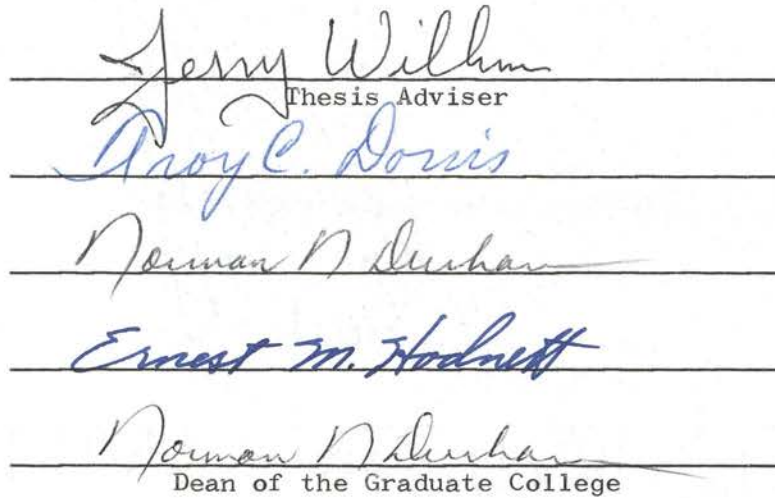 Jerry Wilhm
Thesis Adviser
Troy C. Dorris
Norman N Durham
Ernest M. Hodnett
Norman N Durham
Dean of the Graduate College